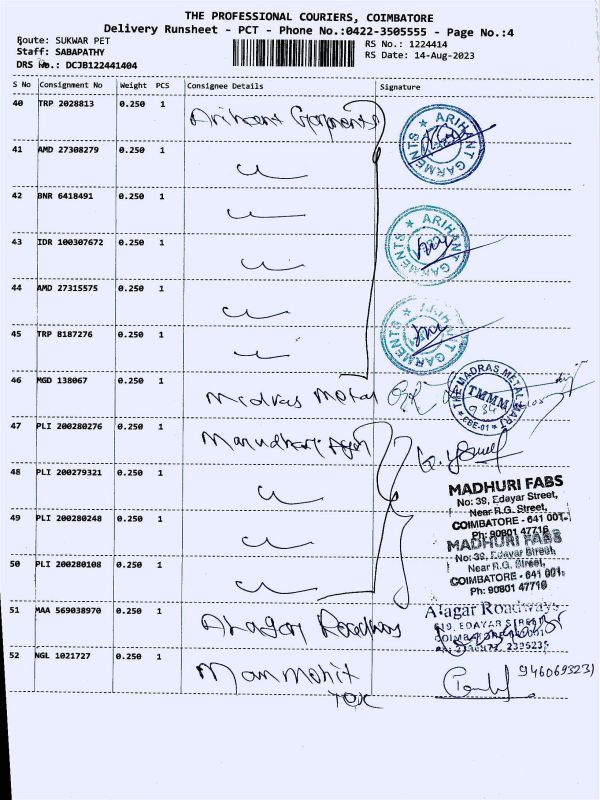 THE PROFESSIONAL COURIERS, COIMBATORE
Delivery Runsheet - PCT - Phone No.:0422-3505555 - Page No.:4
Route: SUKWAR PET
RS No.: 1224414
Staff: SABAPATHY
RS Date: 14-Aug-2023
DRS No.: DCJB122441404
S No Consignment No Weight PCS Consignee Details Signature
40 TRP 2028813 0.250 1 Arihant Garments
ARIHANT GARMENTS
41 AMD 27308279 0.250 1
42 BNR 6418491 0.250 1
ARIHANT GARMENTS
43 IDR 100307672 0.250 1
44 AMD 27315575 0.250 1
ARIHANT GARMENTS
45 TRP 8187276 0.250 1
46 MGD 138067 0.250 1 Madras Metal
THE MADRAS METAL MART
TMMM
47 PLI 200280276 0.250 1
48 PLI 200279321 0.250 1
MADHURI FABS
No: 39, Edayar Street,
Near R.G. Street,
COIMBATORE - 641 001.
Ph: 90801 47716
49 PLI 200280248 0.250 1
MADHURI FABS
No: 39, Edayar Street,
Near R.G. Street,
COIMBATORE - 641 001.
Ph: 90801 47716
50 PLI 200280108 0.250 1
51 MAA 569038970 0.250 1 Alagar Roadways
Alagar Roadways
EDAYAR STREET
COIMBATORE
52 NGL 1021727 0.250 1 Manmohit
Tex
9460693231